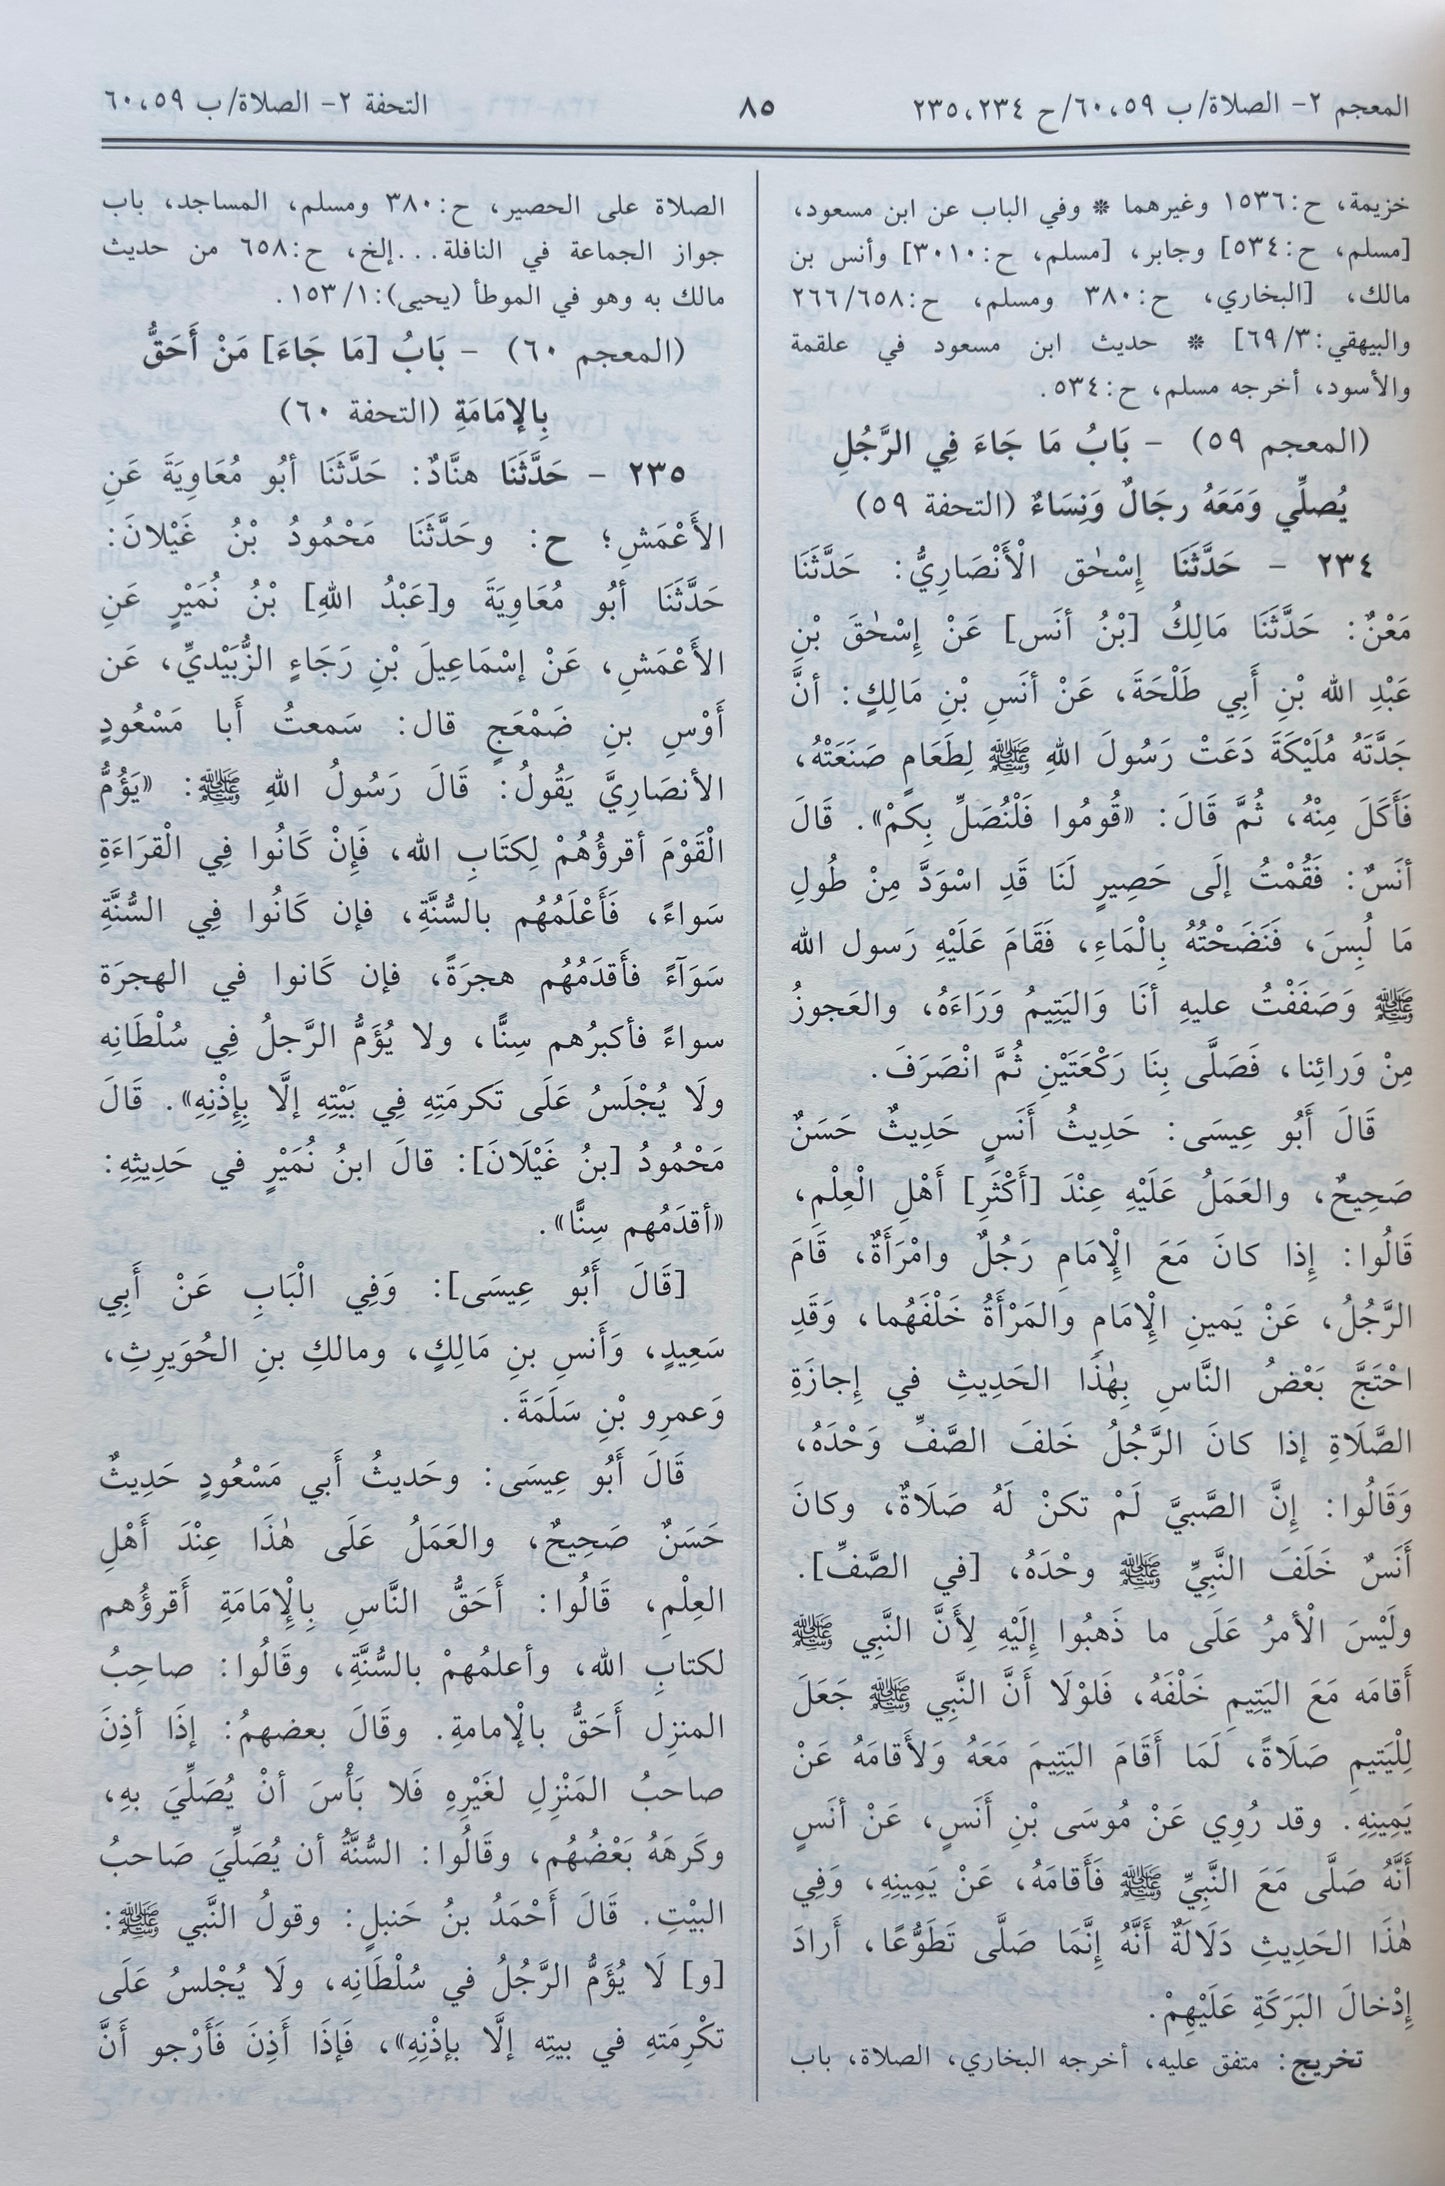 المعجم ٢- الصلاة/ ب ٥٩، ٦٠/ ح ٢٣٤، ٢٣٥
٨٥
التحفة ٢- الصلاة/ ب ٥٩، ٦٠
خزيمة، ح:١٥٣٦ وغيرهما * وفي الباب عن ابن مسعود،
[مسلم، ح:٥٣٤] وجابر، [مسلم، ح:٣٠١٠] وأنس بن
مالك، [البخاري، ح:٣٨٠ ومسلم، ح:٢٦٦/٦٥٨
والبيهقي:٦٩/٣] * حديث ابن مسعود في علقمة
والأسود، أخرجه مسلم، ح:٥٣٤.
(المعجم ٥٩) - بَابُ مَا جَاءَ فِي الرَّجُلِ
يُصلِّي وَمَعَهُ رجَالٌ وَنِسَاءٌ (التحفة ٥٩)
٢٣٤ - حَدَّثَنَا إِسْحٰق الْأَنْصَارِيُّ: حَدَّثَنَا
مَعْنٌ: حَدَّثَنَا مَالِكُ [بْنُ أنَس] عَنْ إِسْحٰقَ بْنِ
عَبْدِ الله بْنِ أَبِي طَلْحَةَ، عَنْ أنَسِ بْنِ مَالِكٍ: أنَّ
جَدَّتَهُ مُلَيْكَةَ دَعَتْ رَسُولَ اللهِ ﷺ لِطَعَامٍ صَنَعَتْهُ،
فَأَكَلَ مِنْهُ، ثُمَّ قَالَ: «قُومُوا فَلْنُصَلِّ بِكمْ». قَالَ
أنَسٌ: فَقُمْتُ إلَى حَصِيرٍ لَنَا قَدِ اسْوَدَّ مِنْ طُولِ
مَا لُبِسَ، فَنَضَحْتُهُ بِالْمَاءِ، فَقَامَ عَلَيْهِ رَسول الله
ﷺ وَصَفَفْتُ عليهِ أنَا وَاليَتِيمُ وَرَاءَهُ، والعَجوزُ
مِنْ وَرائِنا، فَصَلَّى بِنَا رَكْعَتَيْنِ ثُمَّ انْصَرَفَ.
قَالَ أَبُو عِيسَى: حَدِيثُ أَنَسٍ حَدِيثٌ حَسَنٌ
صَحِيحٌ، والعَمَلُ عَلَيْهِ عِنْدَ [أَكْثَرِ] أَهْلِ الْعِلْمِ،
قَالُوا: إِذا كانَ مَعَ الْإِمَامِ رَجُلٌ وامْرَأَةٌ، قَامَ
الرَّجُلُ، عَنْ يَمينِ الْإِمَامِ والمَرْأَةُ خَلْفَهُما، وَقَدِ
احْتَجَّ بَعْضُ النَّاسِ بِهٰذَا الحَدِيثِ في إِجازَةِ
الصَّلَاةِ إذا كانَ الرَّجُلُ خَلفَ الصَّفِّ وَحْدَهُ،
وَقَالُوا: إِنَّ الصَّبيَّ لَمْ تكنْ لَهُ صَلَاةٌ، وكانَ
أَنَسٌ خَلَفَ النَّبِيِّ ﷺ وحْدَهُ، [في الصَّفِّ].
ولَيْسَ الْأمرُ عَلَى ما ذَهبُوا إِلَيْهِ لِأَنَّ النَّبِي ﷺ
أَقامَه مَعَ اليَتِيمِ خَلْفَهُ، فَلوْلَا أَنَّ النَّبِي ﷺ جَعَلَ
لِلْيَتيمِ صَلَاةً، لَمَا أَقَامَ اليَتِيمَ مَعَهُ وَلأَقامَهُ عَنْ
يَمِينِهِ. وقد رُوِي عَنْ مُوسَى بْنِ أَنَسٍ، عَنْ أنَسٍ
أَنَّهُ صَلَّى مَعَ النَّبِيِّ ﷺ فَأَقامَهُ، عَنْ يَمِينِهِ، وَفِي
هٰذَا الحَدِيثِ دَلَالَةٌ أَنَّهُ إِنَّمَا صَلَّى تَطَوُّعًا، أَرادَ
إِدْخالَ البَرَكَةِ عَلَيْهِمْ.
تخريج: متفق عليه، أخرجه البخاري، الصلاة، باب
الصلاة على الحصير، ح:٣٨٠ ومسلم، المساجد، باب
جواز الجماعة في النافلة...إلخ، ح:٦٥٨ من حديث
مالك به وهو في الموطأ (يحيى):١٥٣/١.
(المعجم ٦٠) - بَابُ [مَا جَاءَ] مَنْ أَحَقُّ
بِالإمَامَةِ (التحفة ٦٠)
٢٣٥ - حَدَّثَنَا هنَّادٌ: حَدَّثَنَا أبُو مُعَاوِيَةَ عَنِ
الأَعْمَشِ؛ ح: وحَدَّثَنَا مَحْمُودُ بْنُ غَيْلانَ:
حَدَّثَنَا أبُو مُعَاوِيَةَ و[عَبْدُ اللهِ] بْنُ نُمَيْرٍ عَنِ
الأَعْمَشِ، عَنْ إسْمَاعِيلَ بْنِ رَجَاءٍ الزُّبَيْديِّ، عَن
أَوْسِ بنِ ضَمْعَجٍ قال: سَمعتُ أَبا مَسْعُودٍ
الأنصَارِيَّ يَقُولُ: قَالَ رَسُولُ اللهِ ﷺ: «يَؤُمُّ
الْقَوْمَ أقرؤُهُمْ لِكتَابِ الله، فَإِنْ كَانُوا فِي الْقرَاءَةِ
سَواءً، فَأَعْلَمُهُم بالسُّنَّةِ، فإن كَانُوا فِي السُّنَّةِ
سَوَآءً فأَقدَمُهُم هجرَةً، فإن كَانوا في الهجرَة
سواءً فأكبرُهم سِنًّا، ولا يُؤَمُّ الرَّجلُ فِي سُلْطَانِه
ولَا يُجْلَسُ عَلَى تَكرمَتِهِ فِي بَيْتِهِ إلَّا بِإِذْنِهِ». قَالَ
مَحْمُودُ [بنُ غَيْلَانَ]: قالَ ابنُ نُمَيْرٍ في حَدِيثِهِ:
«أقدَمُهم سِنًّا».
[قَالَ أَبُو عِيسَى]: وَفِي الْبَابِ عَنْ أَبِي
سَعِيدٍ، وَأَنسِ بنِ مَالِكٍ، ومالكِ بنِ الحُوَيرِثِ،
وَعمرِو بْنِ سَلَمَةَ.
قَالَ أَبُو عِيسَى: وحَديثُ أَبي مَسْعُودٍ حَدِيثٌ
حَسَنٌ صَحِيحٌ، والعَمَلُ عَلَى هٰذَا عِنْدَ أَهْلِ
العِلْمِ، قَالُوا: أَحَقُّ النَّاسِ بِالْإِمَامَةِ أَقرؤُهم
لكتابِ الله، وأعلمُهمْ بالسُّنَّةِ، وقَالُوا: صاحِبُ
المنزِل أَحَقُّ بالْإمامةِ. وقَالَ بعضهمُ: إذَا أذِنَ
صاحبُ المَنْزِلِ لغَيْرِهِ فَلا بَأْسَ أنْ يُصَلِّيَ بهِ،
وكَرهَهُ بَعْضُهُم، وقَالُوا: السُّنَّةُ أن يُصَلِّيَ صَاحبُ
البيْتِ. قَالَ أَحْمَدُ بنُ حَنبلٍ: وقولُ النَّبي ﷺ:
[و] لَا يُؤَمُّ الرَّجُلُ في سُلْطَانِه، ولَا يُجْلسُ عَلَى
تكْرِمَتهِ في بيتِه إلَّا بإذْنِهِ»، فَإذَا أَذِنَ فَأَرْجو أَنَّ